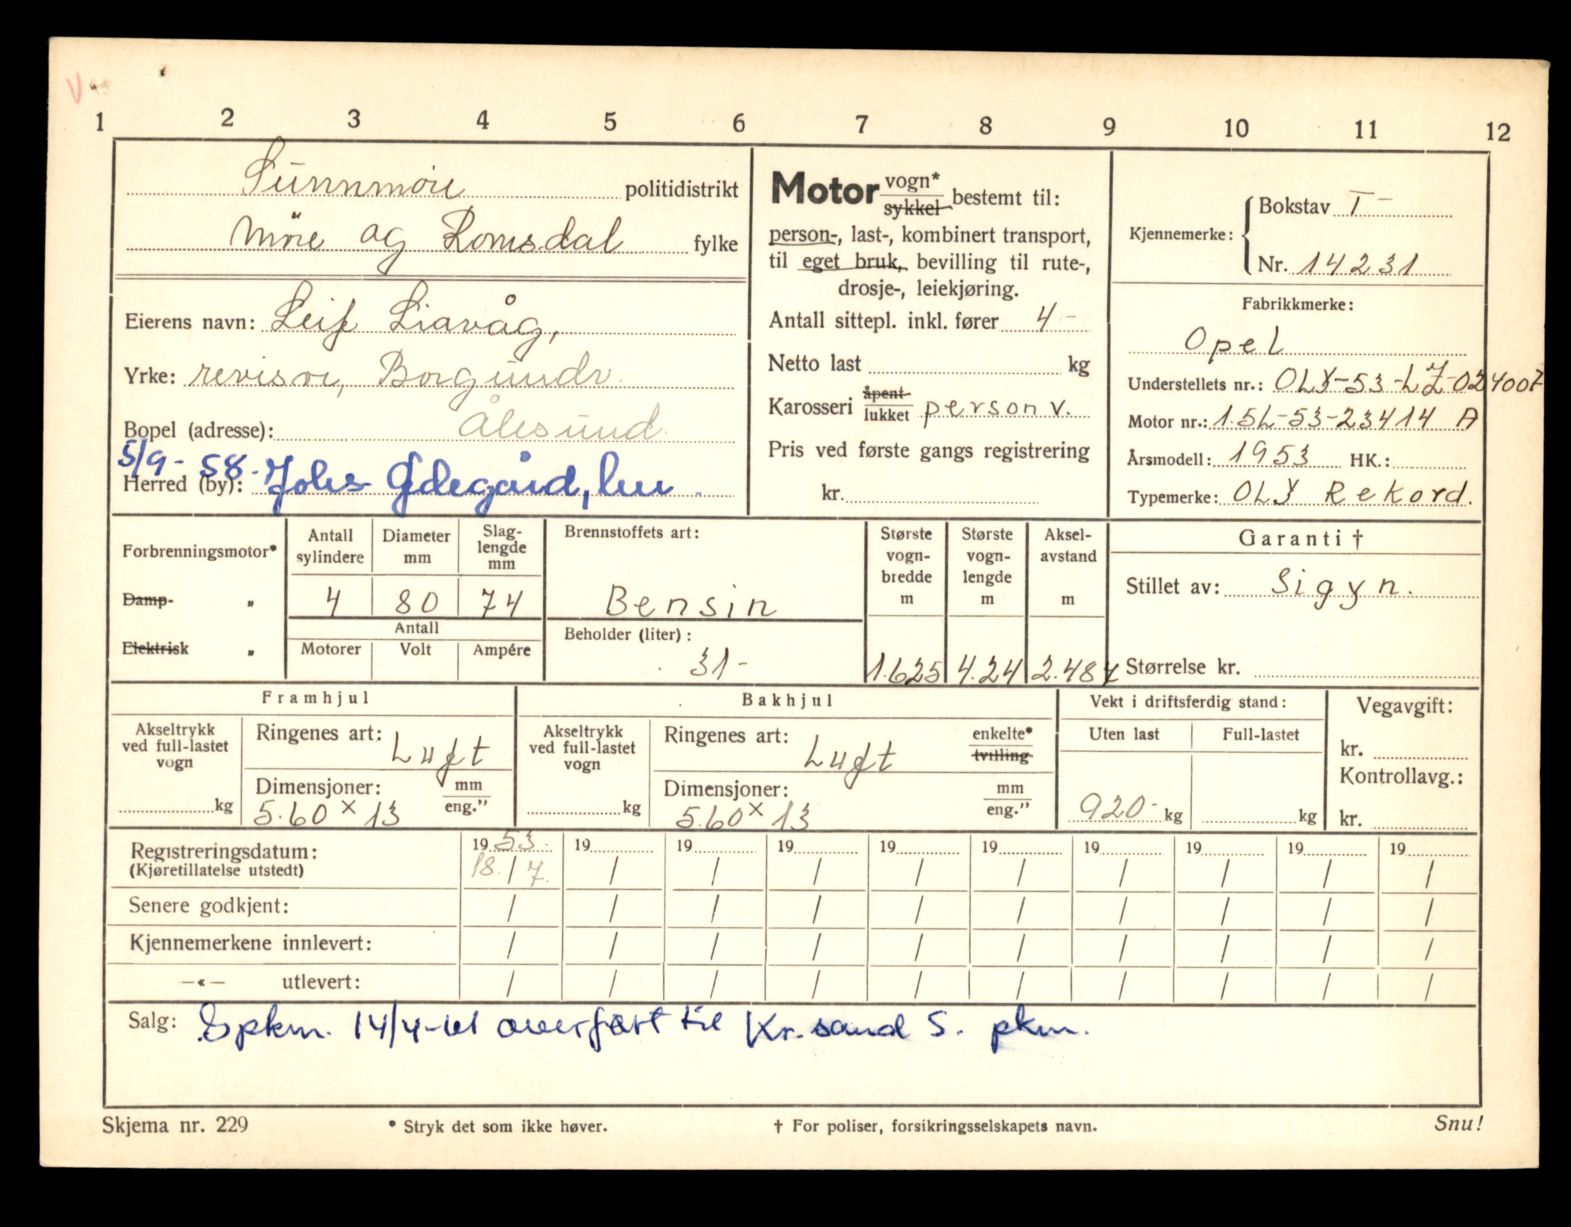 1 2 3 4 5 6 7 8 9 10 11 12
Sunnmøre politidistrikt
Møre og Romsdal fylke
Eierens navn: Leif Liavåg,
Yrke: revisor, Borgundv.
Bopel (adresse): Ålesund
5/9-58. Johs Ødegård, her.
Herred (by):
Motor vogn* sykkel bestemt til:
person-, last-, kombinert transport,
til eget bruk, bevilling til rute-,
drosje-, leiekjøring.
Antall sittepl. inkl. fører 4 -
Netto last kg
Karosseri åpent lukket person v.
Pris ved første gangs registrering
kr.
Kjennemerke: Bokstav T-
Nr. 14231
Fabrikkmerke:
Opel
Understellets nr.: OLY-53-LZ-024007
Motor nr.: 1.5L-53-23414 A
Årsmodell: 1953 HK.:
Typemerke: OLY Rekord.
Forbrenningsmotor*
Damp- „
Elektrisk „
Antall sylindere Diameter mm Slag-lengde mm
4 80 74
Antall
Motorer Volt Ampére
Brennstoffets art:
Bensin
Beholder (liter):
31-
Største vogn-bredde m Største vogn-lengde m Aksel-avstand m
1.625 4.24 2.487
Garanti †
Stillet av: Sigyn.
Størrelse kr.
Framhjul
Akseltrykk ved full-lastet vogn
kg
Ringenes art: Luft
Dimensjoner: mm eng."
5.60 x 13
Bakhjul
Akseltrykk ved full-lastet vogn
kg
Ringenes art: Luft enkelte* tvilling
Dimensjoner: mm eng."
5.60 x 13
Vekt i driftsferdig stand:
Uten last Full-lastet
920- kg kg
Vegavgift:
kr.
Kontrollavg.:
kr.
Registreringsdatum: 1953. 19 19 19 19 19 19 19 19 19
(Kjøretillatelse utstedt) 18./7. / / / / / / / / /
Senere godkjent: / / / / / / / / / /
Kjennemerkene innlevert: / / / / / / / / / /
—«— utlevert: / / / / / / / / / /
Salg: Epkm. 14/4-61 overført til Kr.sand S. pkm.
Skjema nr. 229 * Stryk det som ikke høver. † For poliser, forsikringsselskapets navn. Snu!